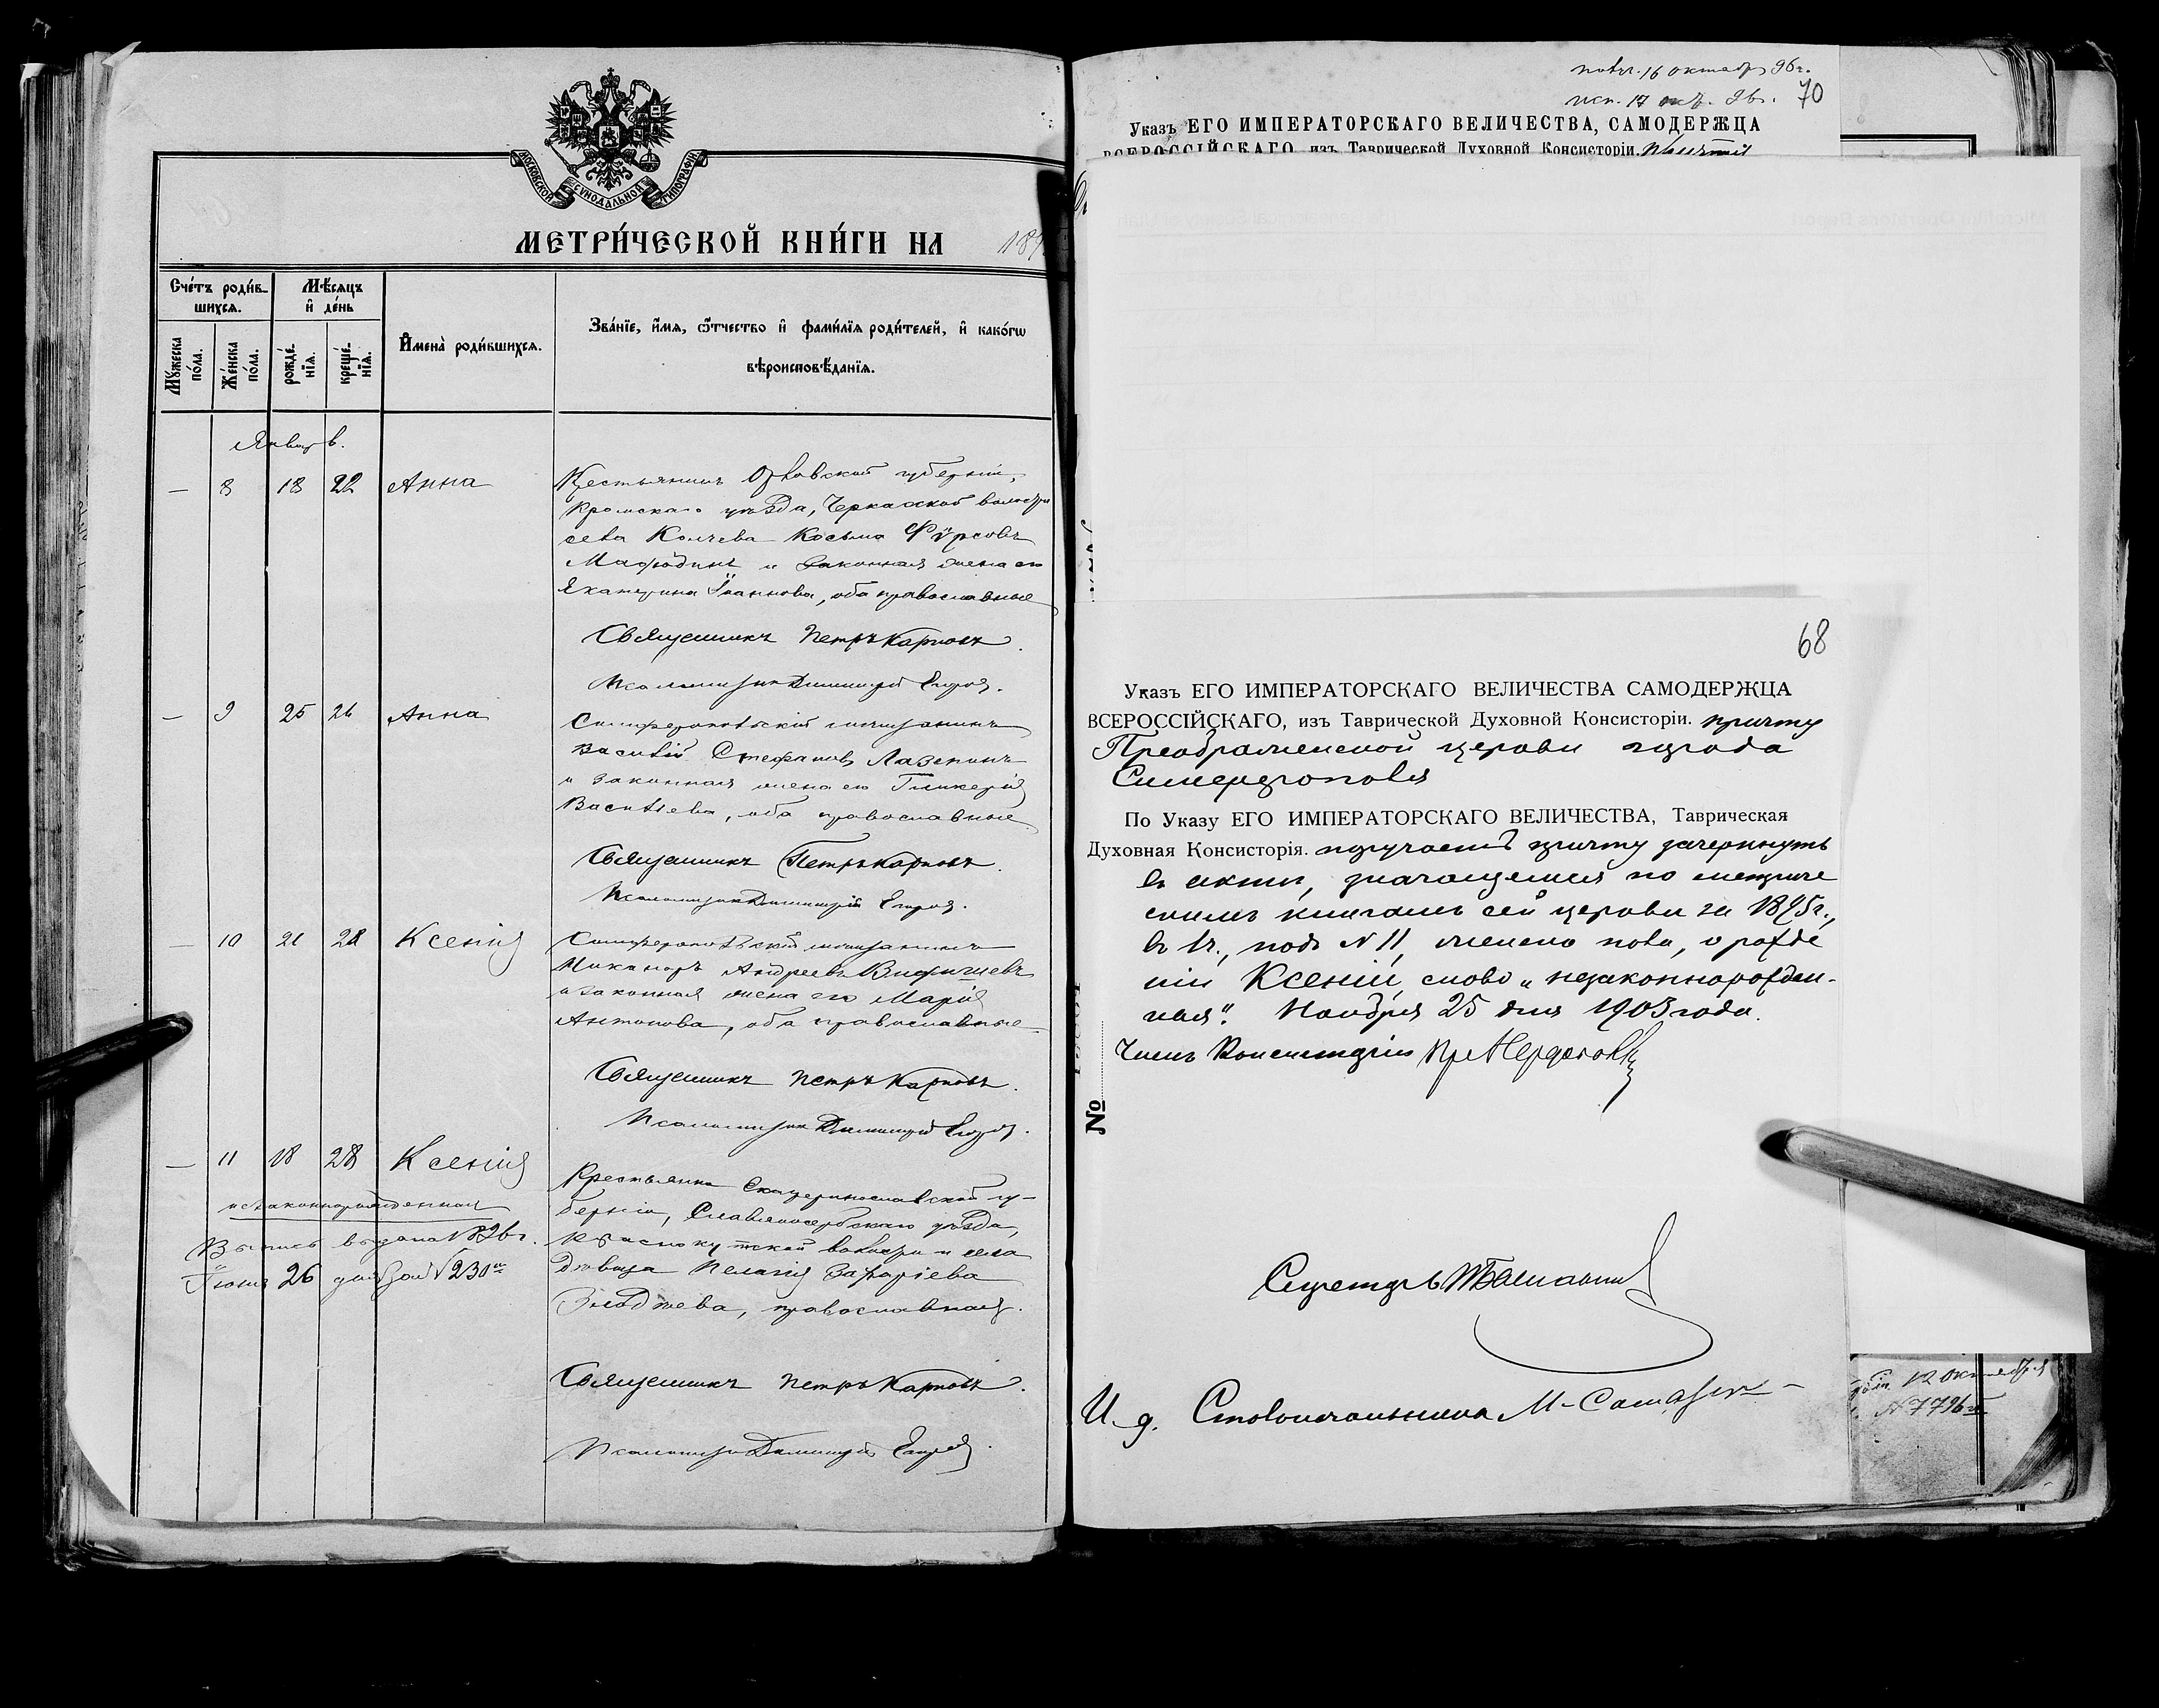 МОСКОВСКОЙ СѴНОДАЛЬНОЙ ТИПОГРАФІИ
МЕТРИ́ЧЕСКОЙ КНИ́ГИ НА 189
Сче́тъ роди́в-
шихся.
Мѣ́сяцъ
и҆ де́нь
Мꙋ́жеска по́ла.
Же́нска по́ла.
рожде́нїѧ.
креще́нїѧ.
И҆мена̀ роди́вшихся.
Зва́нїе, и҆́мѧ, ѻ҆́тчество и҆ фами́лїѧ роди́телей, и҆ како́гѡ
вѣроисповѣ́данїѧ.
Январь.
— 8 18 22 Анна
Крестьянинъ Орловской губерніи,
Кромскаго уѣзда, Черкасской волости
села Колчева Косьма Фурсовъ
и законная жена его
Екатерина Іоаннова, оба православные
Священникъ Петръ Карповъ.
Псаломщикъ Димитрій
— 9 25 26 Анна
Симферопольскій мѣщанинъ
Василій Стефановъ Лазенинъ
и законная жена его Гликерія
Васильева, оба православные
Священникъ Петръ Карповъ.
Псаломщикъ Димитрій
— 10 21 28 Ксенія
Симферопольскій мѣщанинъ
Никаноръ Андреевъ
и законная жена его Марія
Антонова, оба православные
Священникъ Петръ Карповъ.
Псаломщикъ Димитрій
— 11 18 28 Ксенія
незаконнорожденная
Выпись выдана 1882 г.
Іюня 26 дня за № 230
Крестьянка Екатеринославской гу-
берніи, Славяносербскаго уѣзда,
Краснокутской волости и села
Дѣвица Пелагія Захаріева
православная.
Священникъ Петръ Карповъ.
Псаломщикъ Димитрій
пол. 16 октября 96 г.
исп. 17 окт. 96 г. 70
Указъ ЕГО ИМПЕРАТОРСКАГО ВЕЛИЧЕСТВА, САМОДЕРЖЦА
ВСЕРОССІЙСКАГО, изъ Таврической Духовной Консисторіи.
68
Указъ ЕГО ИМПЕРАТОРСКАГО ВЕЛИЧЕСТВА САМОДЕРЖЦА
ВСЕРОССІЙСКАГО, изъ Таврической Духовной Консисторіи. причту
Преображенской церкви города
Симферополя
По Указу ЕГО ИМПЕРАТОРСКАГО ВЕЛИЧЕСТВА, Таврическая
Духовная Консисторія. поручаетъ причту зачеркнуть
въ актѣ, значащемся по метриче
скимъ книгамъ сей церкви за 1895 г.,
въ 1 ч., подъ № 11, женско пола, о рожде
ніи Ксеніи, слово „незаконнорожден-
ная". Ноября 25 дня 1903 года.
Членъ Консисторіи
№
Секретарь
И. д. Столоначальника М.
12 Октября
№ 7796